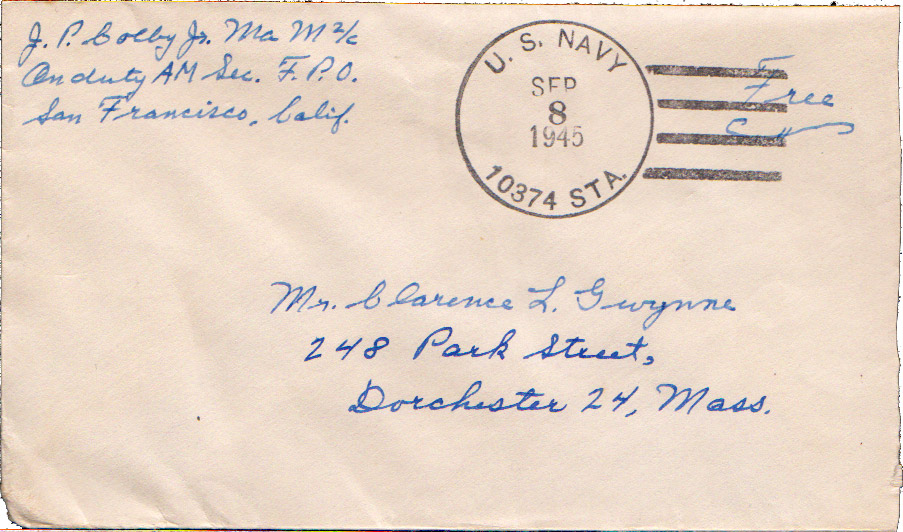 J. P. Colby Jr. Ma M 2/c
On duty AM Sec. F. P. O.
San Francisco, Calif.
U. S. NAVY
SEP
8
1945
10374 STA.
Free
Mr. Clarence L. Gwynne
248 Park Street,
Dorchester 24, Mass.